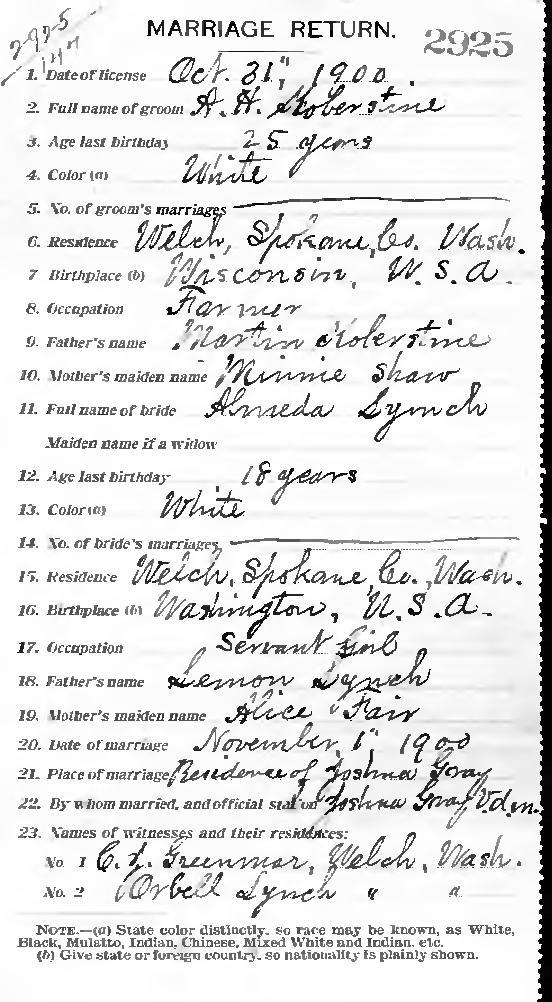 2925
147
MARRIAGE RETURN.
2925
1. Date of license Oct. 31", 1900.
2. Full name of groom A. H. Koberstine
3. Age last birthday 25 years
4. Color (a) White
5. No. of groom's marriages
6. Residence Welch, Spokane, Co. Wash.
7 Birthplace (b) Wisconsin, U. S. A.
8. Occupation Farmer
9. Father's name Martin Koberstine
10. Mother's maiden name Minnie Shaw
11. Full name of bride Almeda Lynch
Maiden name if a widow
12. Age last birthday 18 years
13. Color (a) White
14. No. of bride's marriages
15. Residence Welch, Spokane, Co., Wash.
16. Birthplace (b) Washington, U. S. A.
17. Occupation Servant Girl
18. Father's name Lemon Lynch
19. Mother's maiden name Alice Fair
20. Date of marriage November, 1", 1900
21. Place of marriage Residence of Joshua Gray
22. By whom married, and official station Joshua Gray V.d.m.
23. Names of witnesses and their residences:
No. 1 Greenmar, Welch, Wash.
No. 2 Orbell Lynch " "
NOTE.—(a) State color distinctly, so race may be known, as White,
Black, Mulatto, Indian, Chinese, Mixed White and Indian, etc.
(b) Give state or foreign country, so nationality is plainly shown.